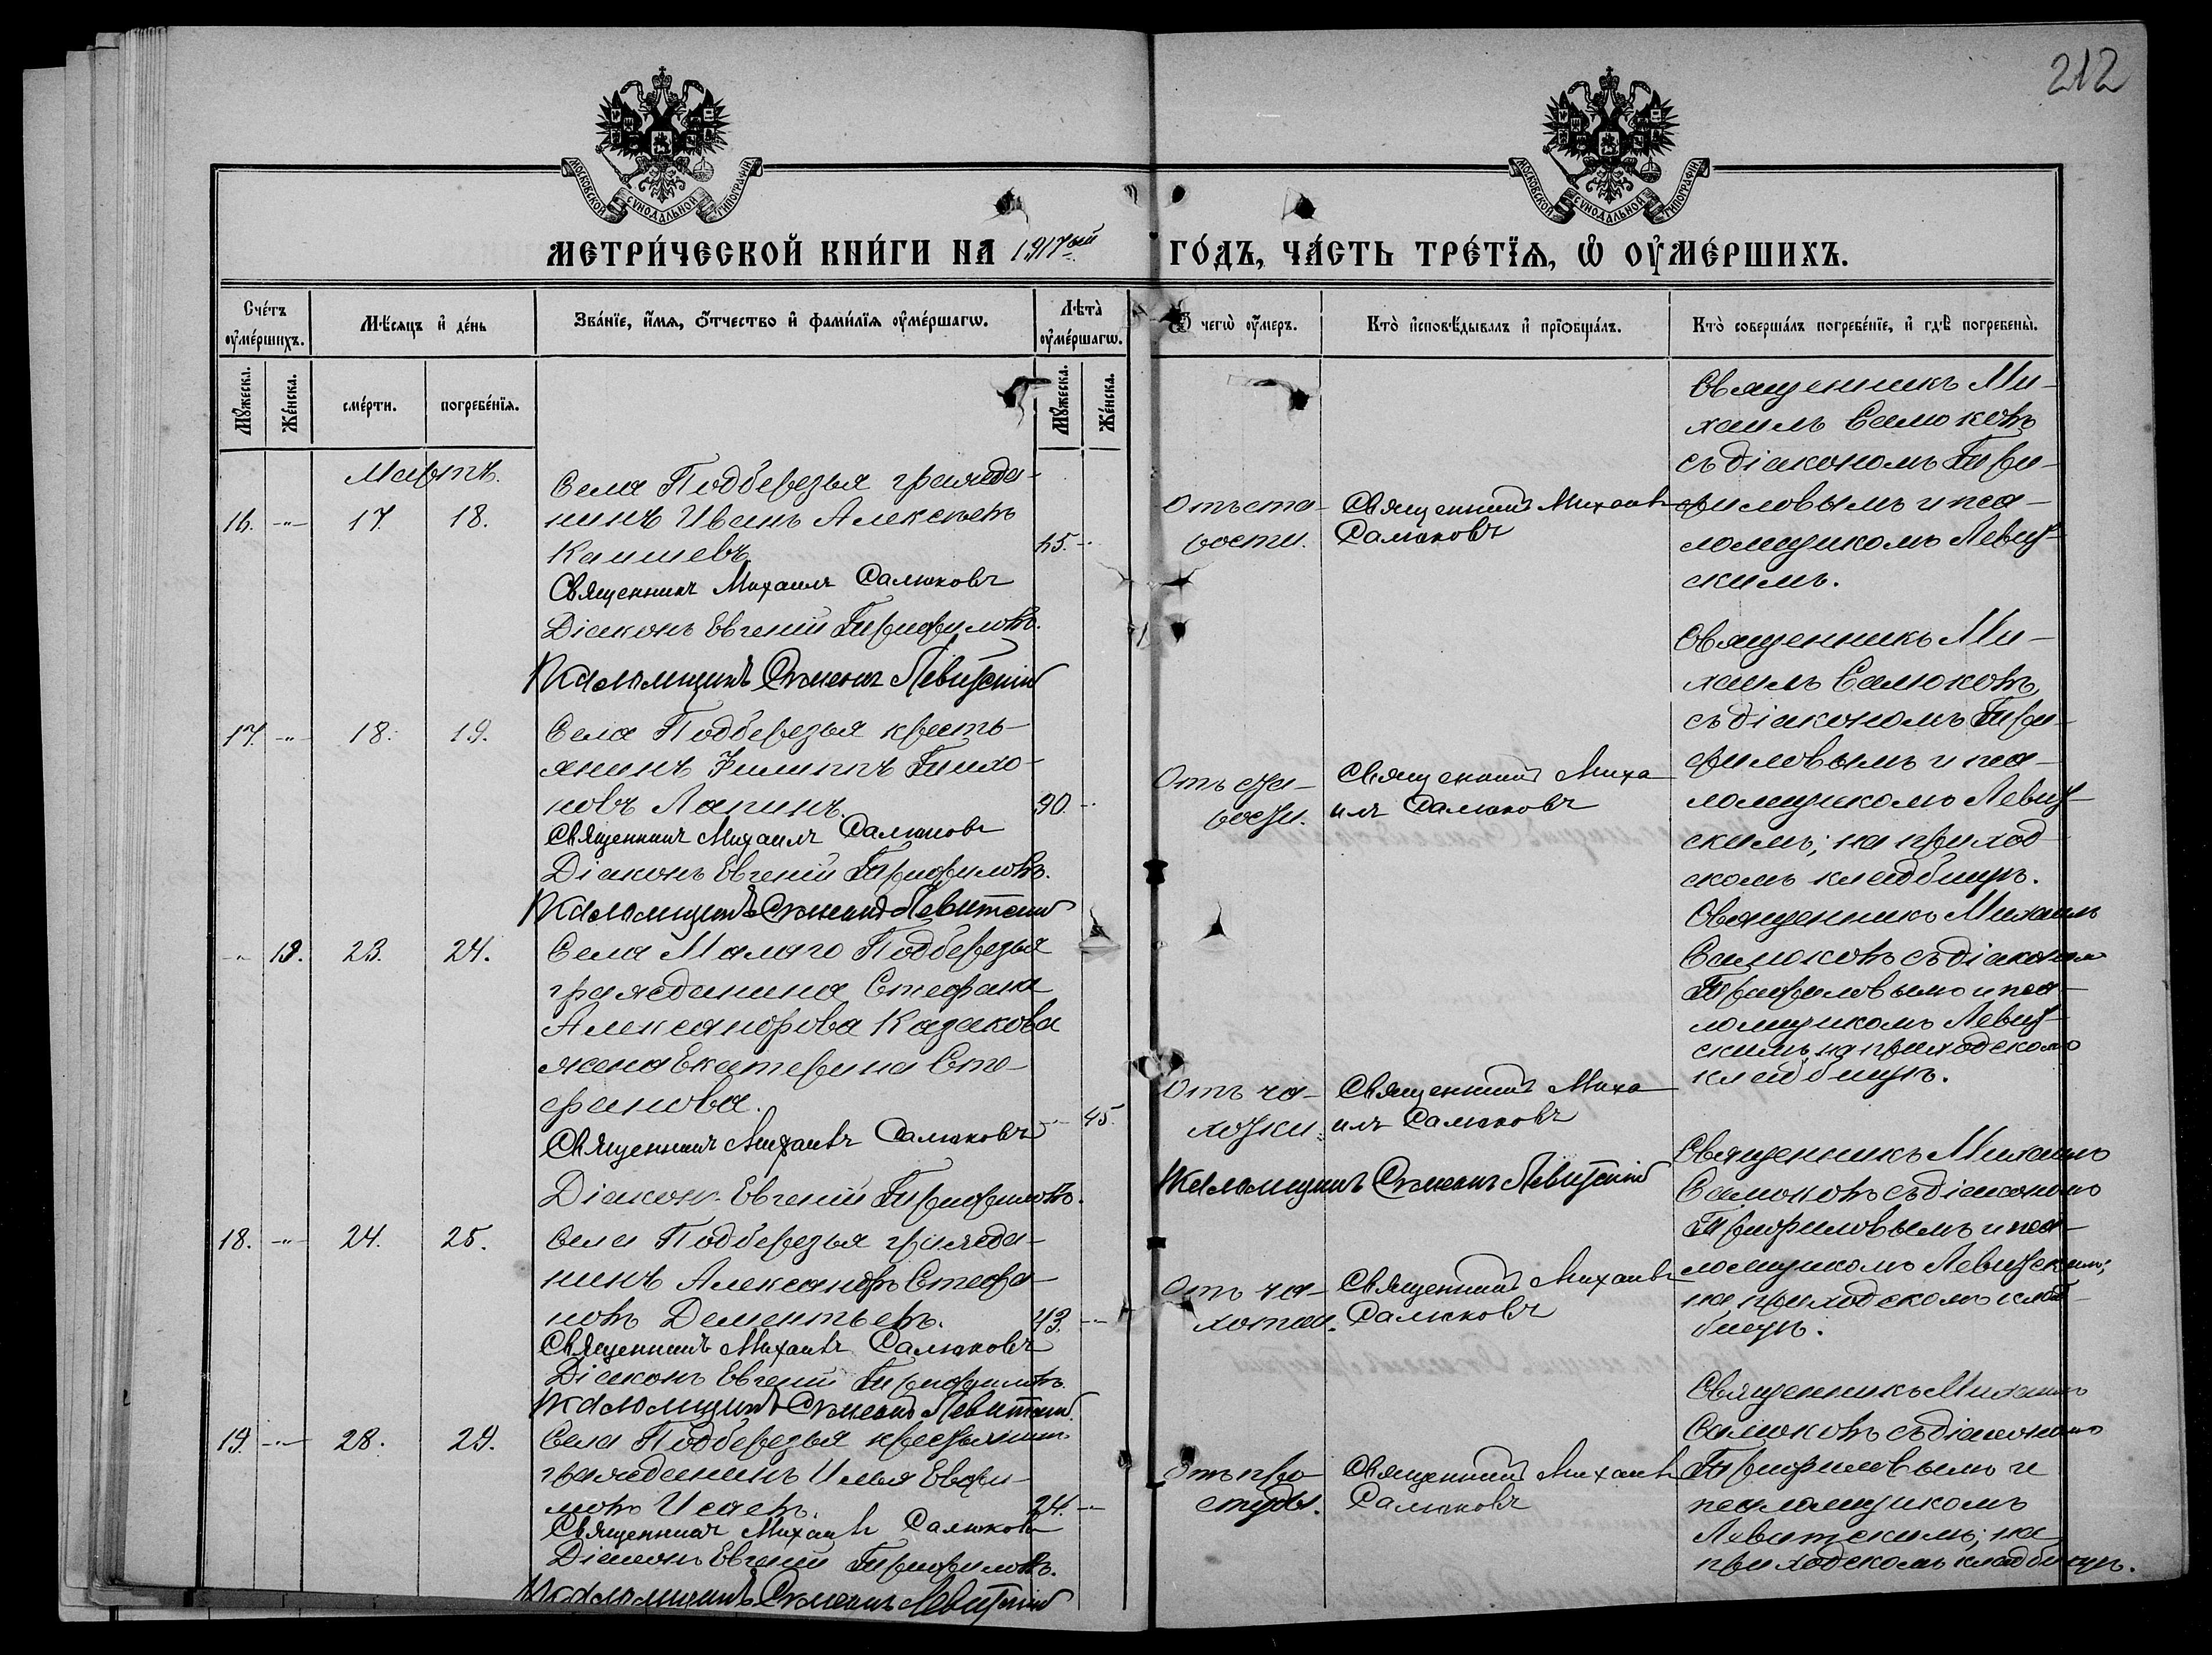 212
МОСКОВСКОЙ СУНОДАЛЬНОЙ ТИПОГРАФІИ
МОСКОВСКОЙ СУНОДАЛЬНОЙ ТИПОГРАФІИ
МЕТРИ́ЧЕСКОЙ КНИ́ГИ НА 1917ый ГО́ДЪ, ЧА́СТЬ ТРЕ́ТЇѦ, Ѡ҆ ОУ҆МЕ́РШИХЪ.
Сче́тъ оу҆ме́ршихъ.
Мѣ́сяцъ и҆ де́нь
Зва́нїе, и҆́мѧ, ѻ҆́тчество и҆ фами́лїѧ оу҆ме́ршагѡ.
Лѣта̀ оу҆ме́ршагѡ.
Ѿ чегѡ̀ оу҆́меръ.
Кто̀ и҆сповѣ́дывалъ и҆ прїѻбща́лъ.
Кто̀ соверша́лъ погребе́нїе, и҆ гдѣ̀ погребены̀.
Мꙋ́жеска.
Же́нска.
сме́рти.
погребе́нїѧ.
Мꙋ́жеска.
Же́нска.
Мартъ.
16. -"- 17. 18.
Села Подберезья гражда-
нинъ Иванъ Алексѣевъ
Каишевъ
Священникъ Михаилъ Салюковъ
Діаконъ Евгеній Трифиловъ.
Псаломщикъ Симеонъ Левитскій
Отъ ста-
рости.
Священникъ Михаилъ
Салюковъ
Священникъ Ми-
хаилъ Салюковъ
съ діакономъ Три-
филовымъ и пса-
ломщикомъ Левит-
скимъ.
17. -"- 18. 19.
Села Подберезья кресть-
янинъ Филиппъ Тихо-
новъ Лапинъ. 90. -"-
Священникъ Михаилъ Салюковъ
Діаконъ Евгеній Трифиловъ.
Псаломщикъ Симеонъ Левитскій
Отъ ста-
рости.
Священникъ Миха
илъ Салюковъ
Священникъ Ми-
хаилъ Салюковъ
съ діакономъ Три-
филовымъ и пса-
ломщикомъ Левит-
скимъ; на приход-
скомъ кладбищѣ.
-"- 19. 23. 24.
Села Малаго Подберезья
гражданина Стефана
Александрова Казакова
жена Екатерина Сте-
фанова. -"- 45.
Священникъ Михаилъ Салюковъ
Діаконъ Евгеній Трифиловъ.
Отъ ча-
хотки.
Священникъ Миха
илъ Салюковъ
Псаломщикъ Симеонъ Левитскій
Священникъ Михаилъ
Салюковъ съ діакономъ
Трифиловымъ и пса-
ломщикомъ Левит-
скимъ, на приходскомъ
кладбищѣ.
18. -"- 24. 25.
Села Подберезья гражда-
нинъ Александръ Стефа-
новъ Дементьевъ. 43. -"-
Священникъ Михаилъ Салюковъ
Діаконъ Евгеній Трифиловъ
Псаломщикъ Симеонъ Левитскій.
Отъ ча-
хотки.
Священникъ Михаилъ
Салюковъ
Священникъ Михаилъ
Салюковъ съ діакономъ
Трифиловымъ и пса-
ломщикомъ Левитскимъ;
на приходскомъ клад-
бищѣ.
19. -"- 28. 29.
Села Подберезья крестьянинъ
гражданинъ Илья Евфи-
мовъ Исаевъ. 24. -"-
Священникъ Михаилъ Салюковъ
Діаконъ Евгеній Трифиловъ.
Псаломщикъ Симеонъ Левитскій
Отъ про-
студы.
Священникъ Михаилъ
Салюковъ
Священникъ Михаилъ
Салюковъ съ діакономъ
Трифиловымъ и
псаломщикомъ
Левитскимъ; на
приходскомъ кладбищѣ.